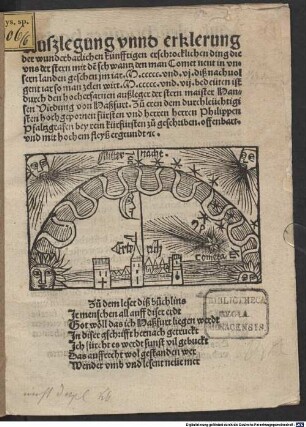 Auszlegung vnnd erklerung
der wunderbarlichen künfftigen erschrocklichen ding die
vns der stern mit dē schwantz den man Comet nent in vn
sern landen gesehen jm iar. M. ccccc. vnd. vj. diß nachuol
gent iar so man zelen wirt. M. ccccc. vnd. vij. bedeüten ist
durch den hocherfarnen außleger der stern maister Han
sen Virdung von Haßfurt. Zů eren dem durchleüchtigi
sten hochgepornen fürsten vnd herren herren Philippen
Pfaltzgrafen bey rein kürfürsten zů geschriben. offenbart.
vnd mit hochem fleyß ergrundt ⁊c.
nacht
Ertrich
Cometa
Zů dem leser diß büchlins
Ir menschen all auff diser erde
Got wöll das ich Haßfurt liegen werdt
In diser gschrifft hernach getruckt
Ich fürcht es werdt sunst vil gebuckt
Das auffrecht wol gestanden wer
Wender vmb vnd lesent neüe mer
BIBLIOTHECA
REGIA
MONACENSIS